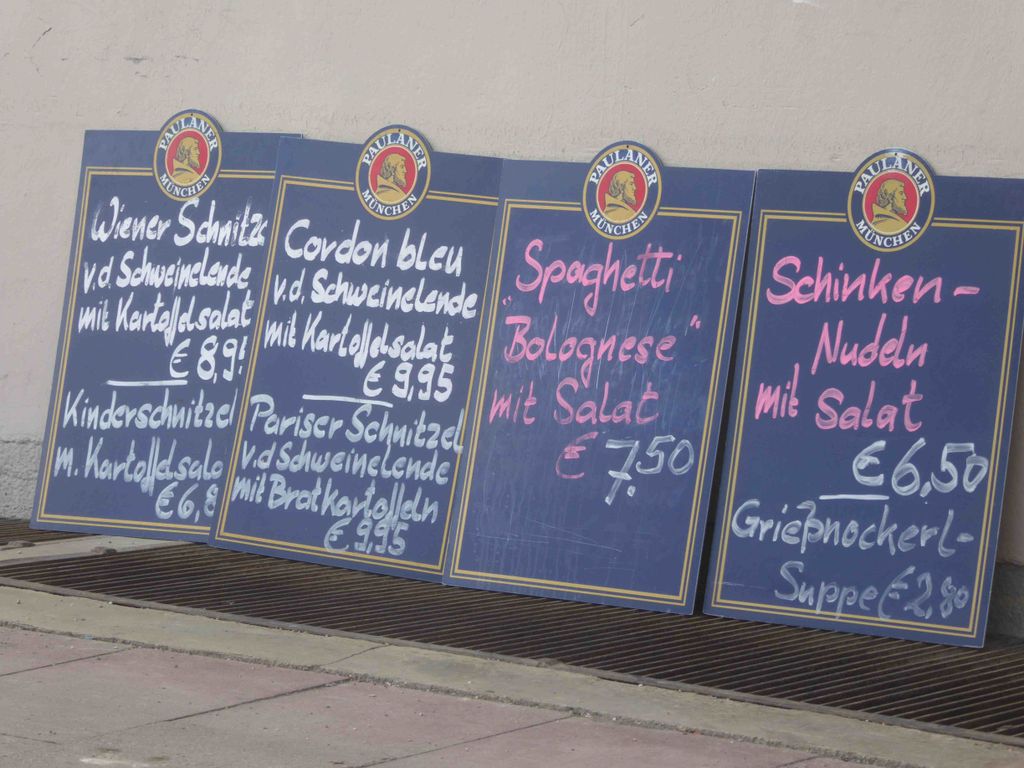 PAULANER
MÜNCHEN
Wiener Schnitze
v.d. Schweinelende
mit Kartoffelsalat
€ 8,9
Kinderschnitzel
m. Kartoffelsala
€ 6,8
PAULANER
MÜNCHEN
Cordon bleu
v.d. Schweinelende
mit Kartoffelsalat
€ 9,95
Pariser Schnitzel
v.d Schweinelende
mit Bratkartoffeln
€ 9,95
PAULANER
MÜNCHEN
Spaghetti
"Bolognese"
mit Salat
€ 7.50
PAULANER
MÜNCHEN
Schinken-
Nudeln
mit Salat
€ 6,50
Grießnockerl-
Suppe € 2,80